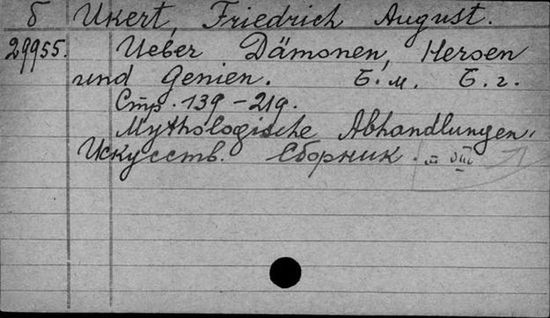 б Ukert, Friedrich August.
29955. Ueber Dämonen, Heroen
und Genien. Б.м. Б.г.
Стр. 139-219.
Mythologische Abhandlungen.
Искусств. Сборник. VIII